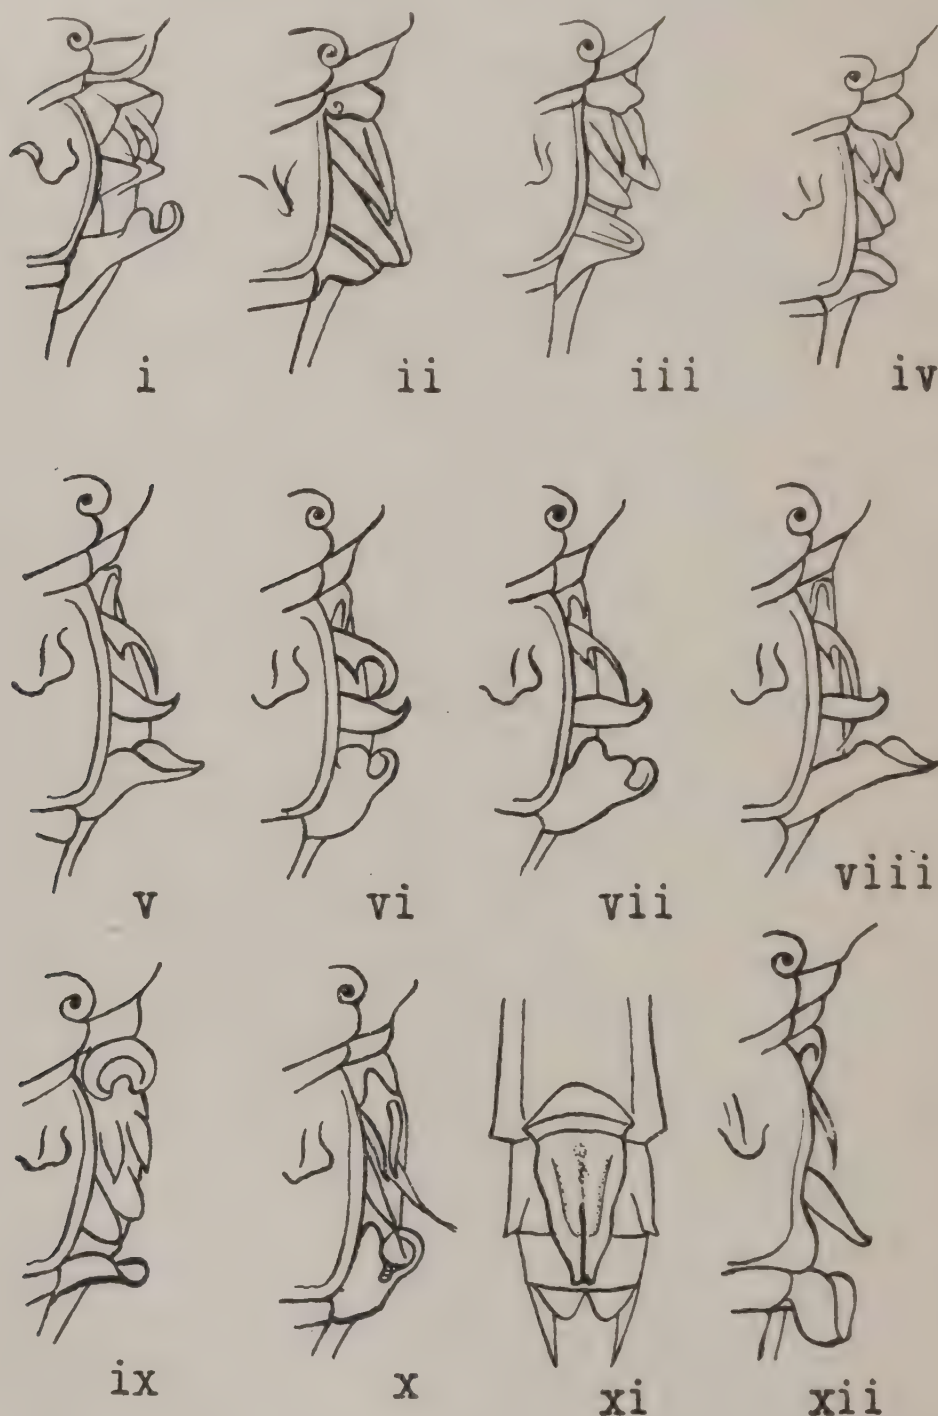 i ii iii iv
v vi vii viii
ix x xi xii